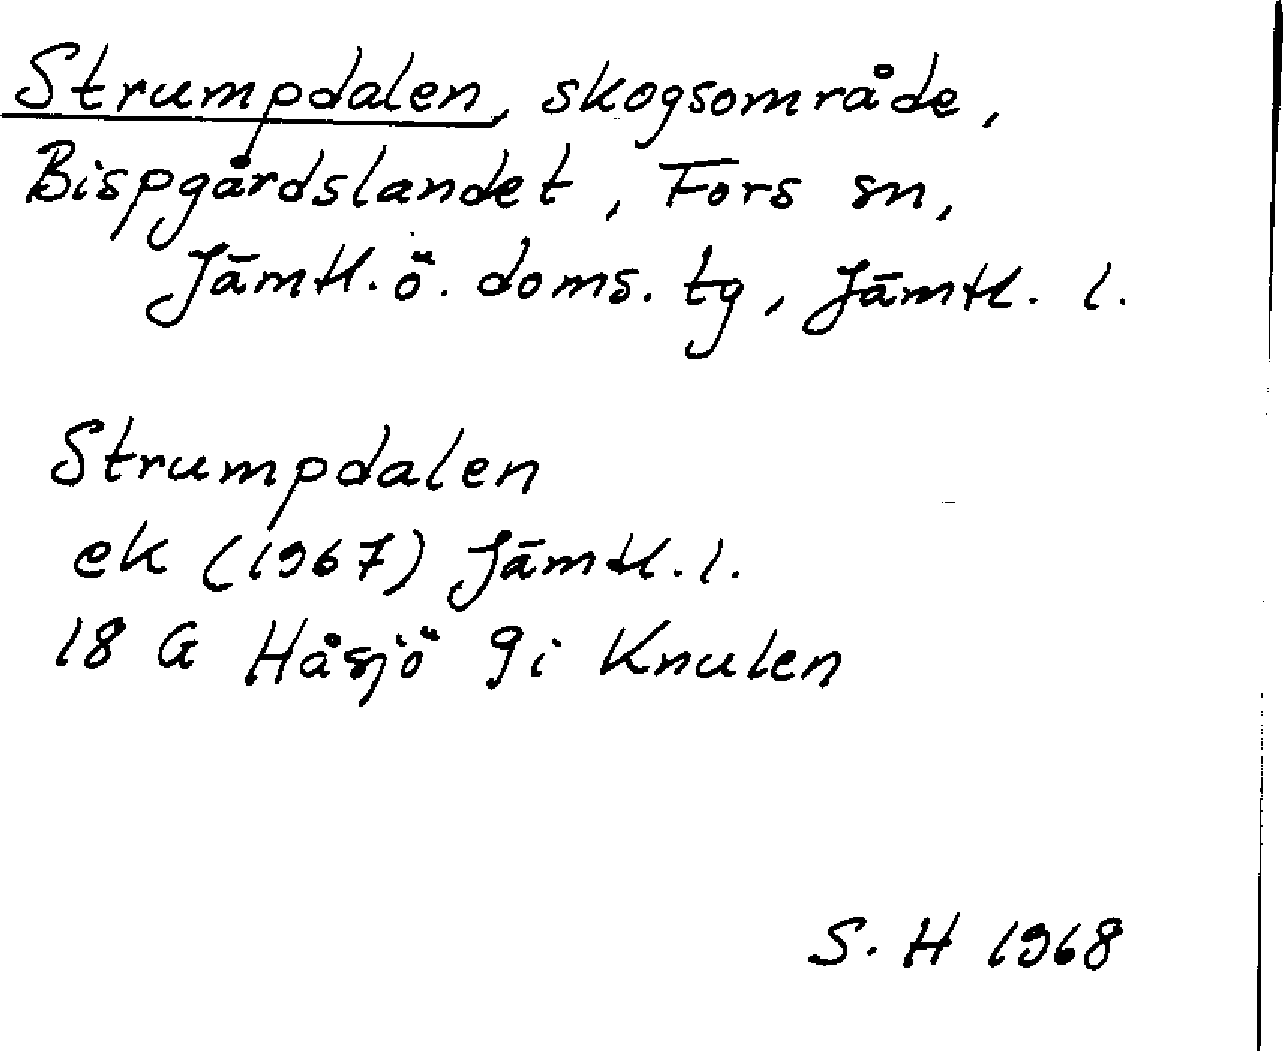 Strumpdalen, skogsområde,
Bispgårdslandet, Fors sn,
Jämtl. ö. doms. tg, Jämtl. l.
Strumpdalen
ek (1967) Jämtl. l.
18 G Håsjö 9i Knulen
S. H 1968